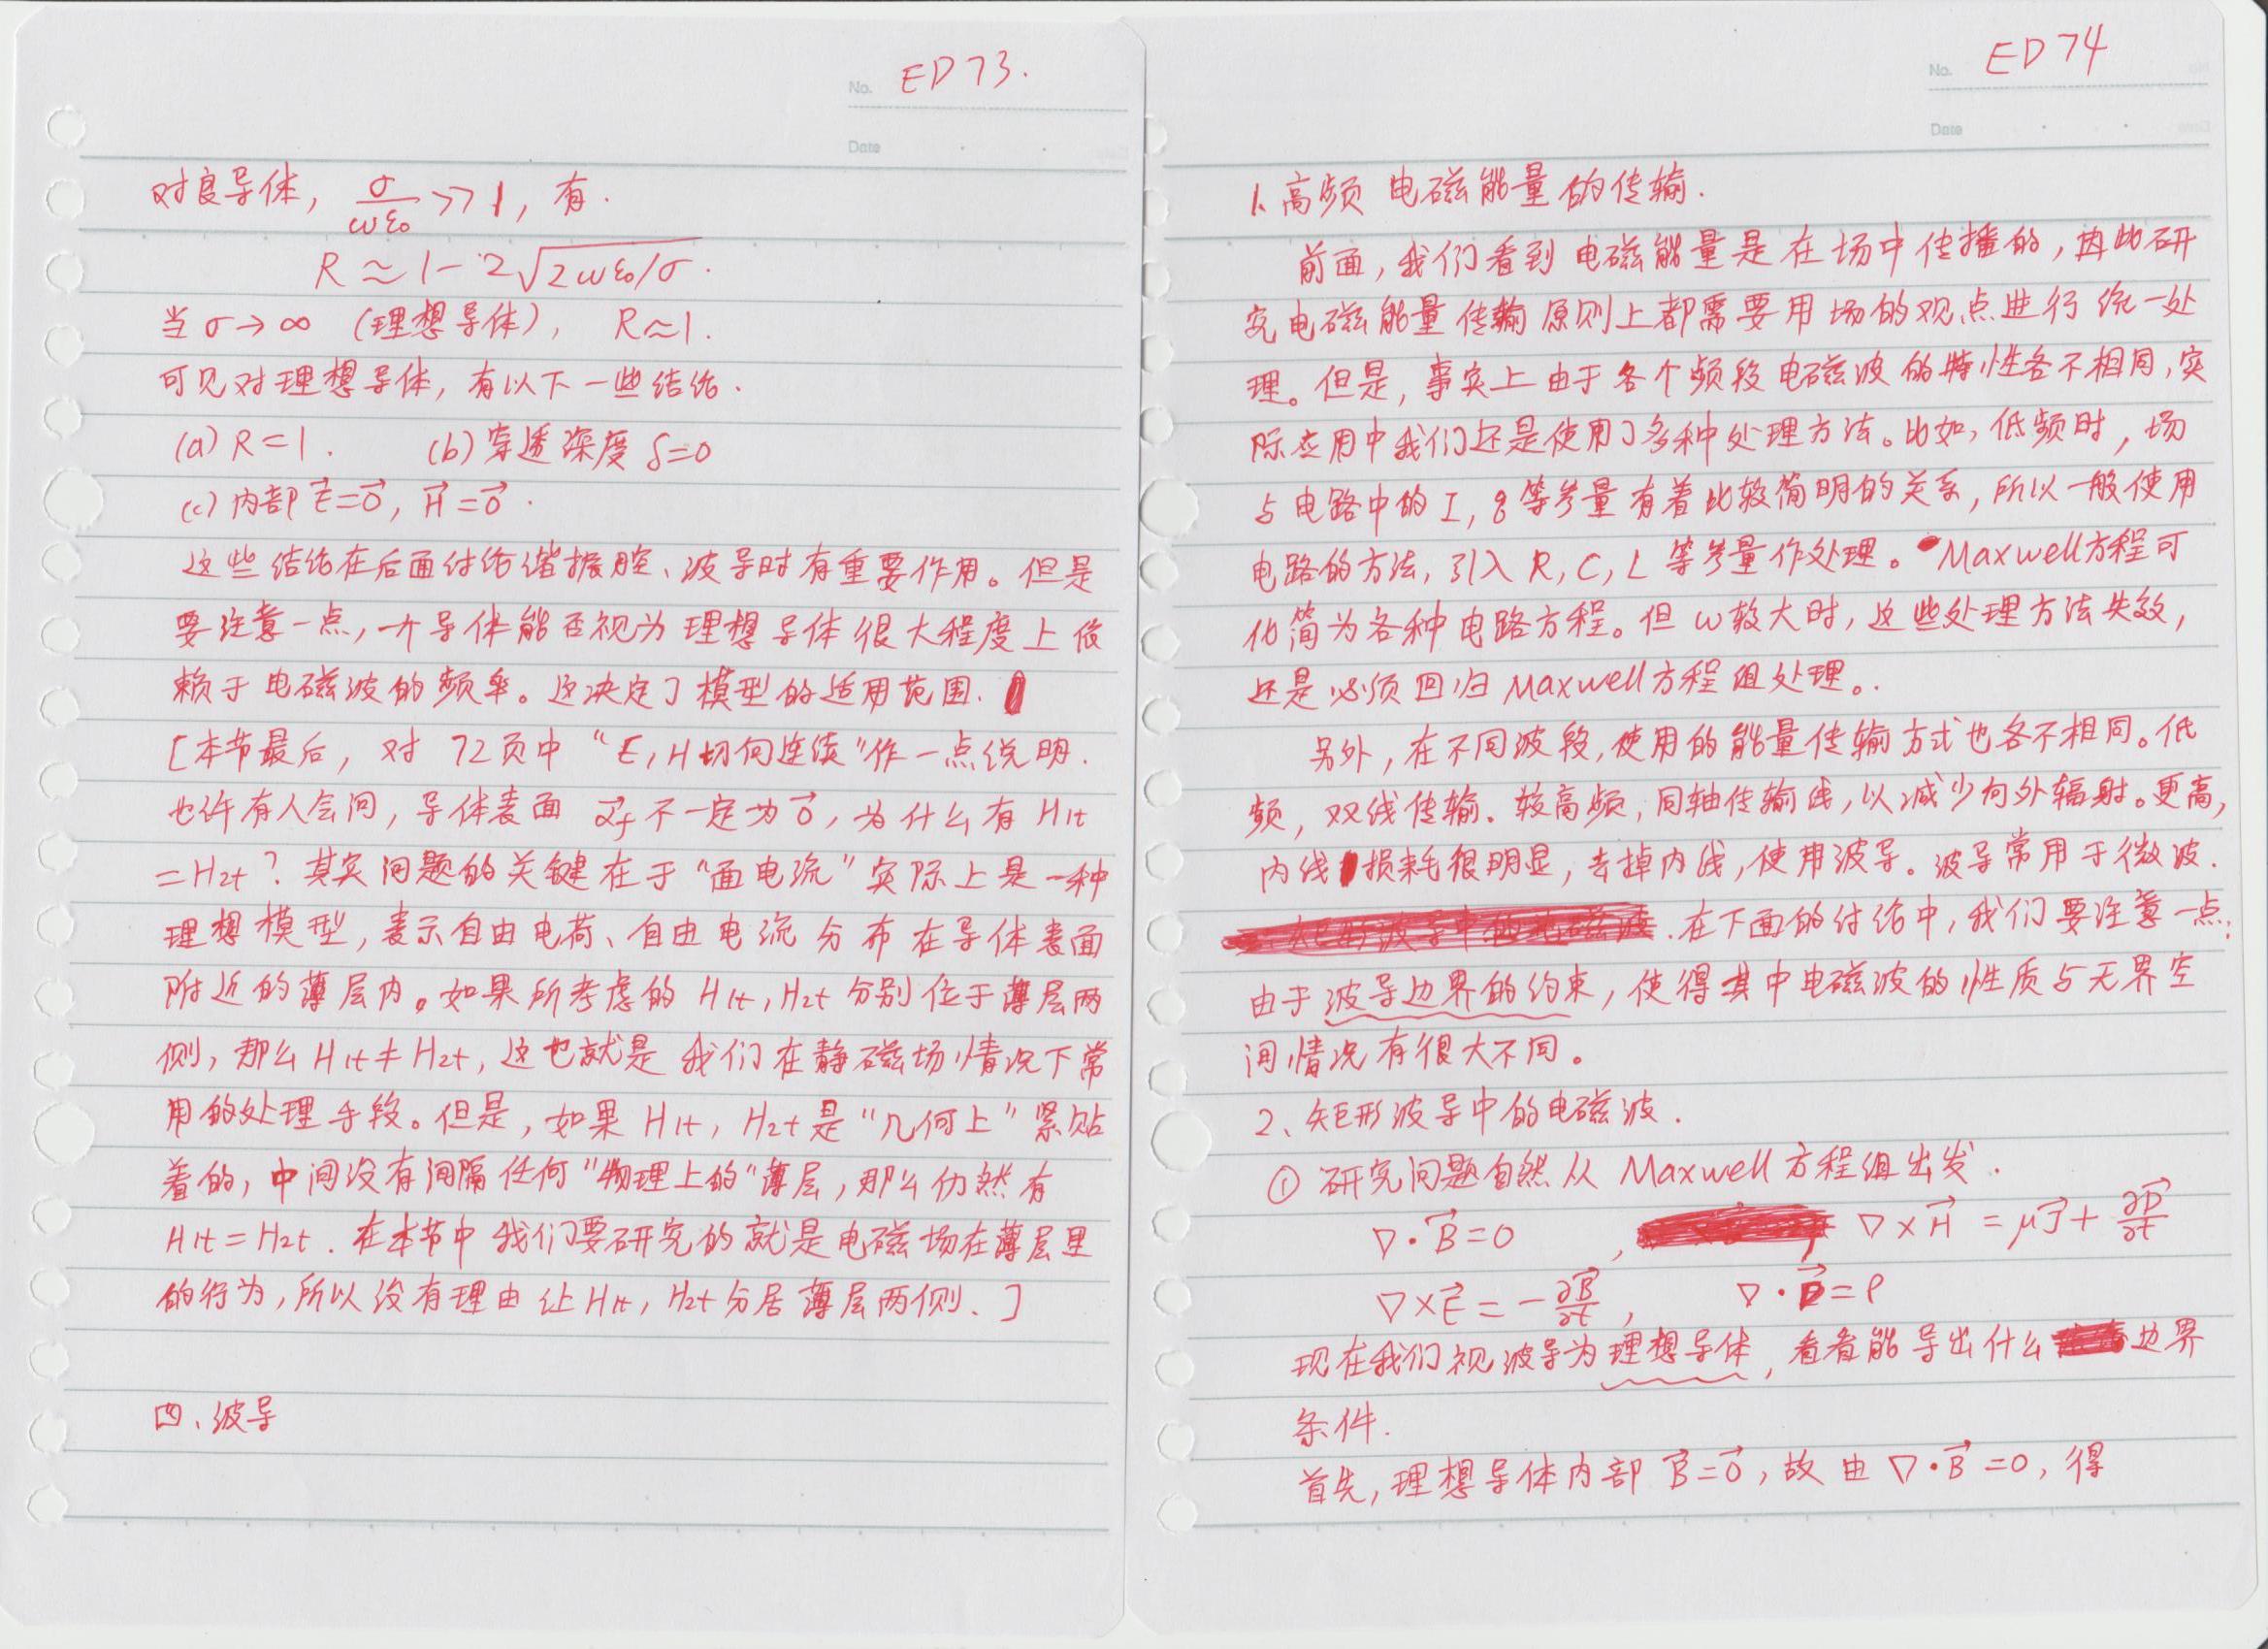 No. ED73.
Date
对良导体, σ/ωε₀ >> 1, 有.
R ≈ 1 - 2√(2ωε₀/σ).
当 σ→∞ (理想导体), R≈1.
可见对理想导体, 有以下一些结论.
(a) R=1. (b) 穿透深度 δ=0
(c) 内部 E⃗=0⃗, H⃗=0⃗.
这些结论在后面讨论谐振腔、波导时有重要作用。但是
要注意一点, 一个导体能否视为理想导体很大程度上依
赖于电磁波的频率。这决定了模型的适用范围.
[本节最后, 对 72页中 "E, H切向连续" 作一点说明.
也许有人会问, 导体表面 α⃗f 不一定为 0⃗, 为什么有 H1t
=H2t? 其实问题的关键在于"面电流"实际上是一种
理想模型, 表示自由电荷、自由电流分布在导体表面
附近的薄层内。如果所考虑的 H1t, H2t 分别位于薄层两
侧, 那么 H1t≠H2t, 这也就是我们在静磁场情况下常
用的处理手段。但是, 如果 H1t, H2t 是"几何上"紧贴
着的, 中间没有间隔任何"物理上的"薄层, 那么仍然有
H1t=H2t. 在本节中我们要研究的就是电磁场在薄层里
的行为, 所以没有理由让 H1t, H2t 分居薄层两侧.]
四、波导
No. ED74
Date
1. 高频电磁能量的传输.
前面, 我们看到电磁能量是在场中传播的, 因此研
究电磁能量传输原则上都需要用场的观点进行统一处
理。但是, 事实上由于各个频段电磁波的特性各不相同, 实
际应用中我们还是使用了多种处理方法。比如, 低频时, 场
与电路中的 I, q 等参量有着比较简明的关系, 所以一般使用
电路的方法, 引入 R, C, L 等参量作处理。Maxwell方程可
化简为各种电路方程。但 ω 较大时, 这些处理方法失效,
还是必须回归 Maxwell 方程组处理。.
另外, 在不同波段, 使用的能量传输方式也各不相同。低
频, 双线传输. 较高频, 同轴传输线, 以减少向外辐射。更高,
内线损耗很明显, 去掉内线, 使用波导。波导常用于微波.
在下面的讨论中, 我们要注意一点:
由于波导边界的约束, 使得其中电磁波的性质与无界空
间情况有很大不同。
2、矩形波导中的电磁波.
① 研究问题自然从 Maxwell 方程组出发.
∇·B⃗=0 , ∇×H⃗ = μJ⃗ + ∂D⃗/∂t
∇×E⃗ = -∂B⃗/∂t , ∇·D⃗=ρ
现在我们视波导为理想导体, 看看能导出什么边界
条件.
首先, 理想导体内部 B⃗=0⃗, 故由 ∇·B⃗=0, 得